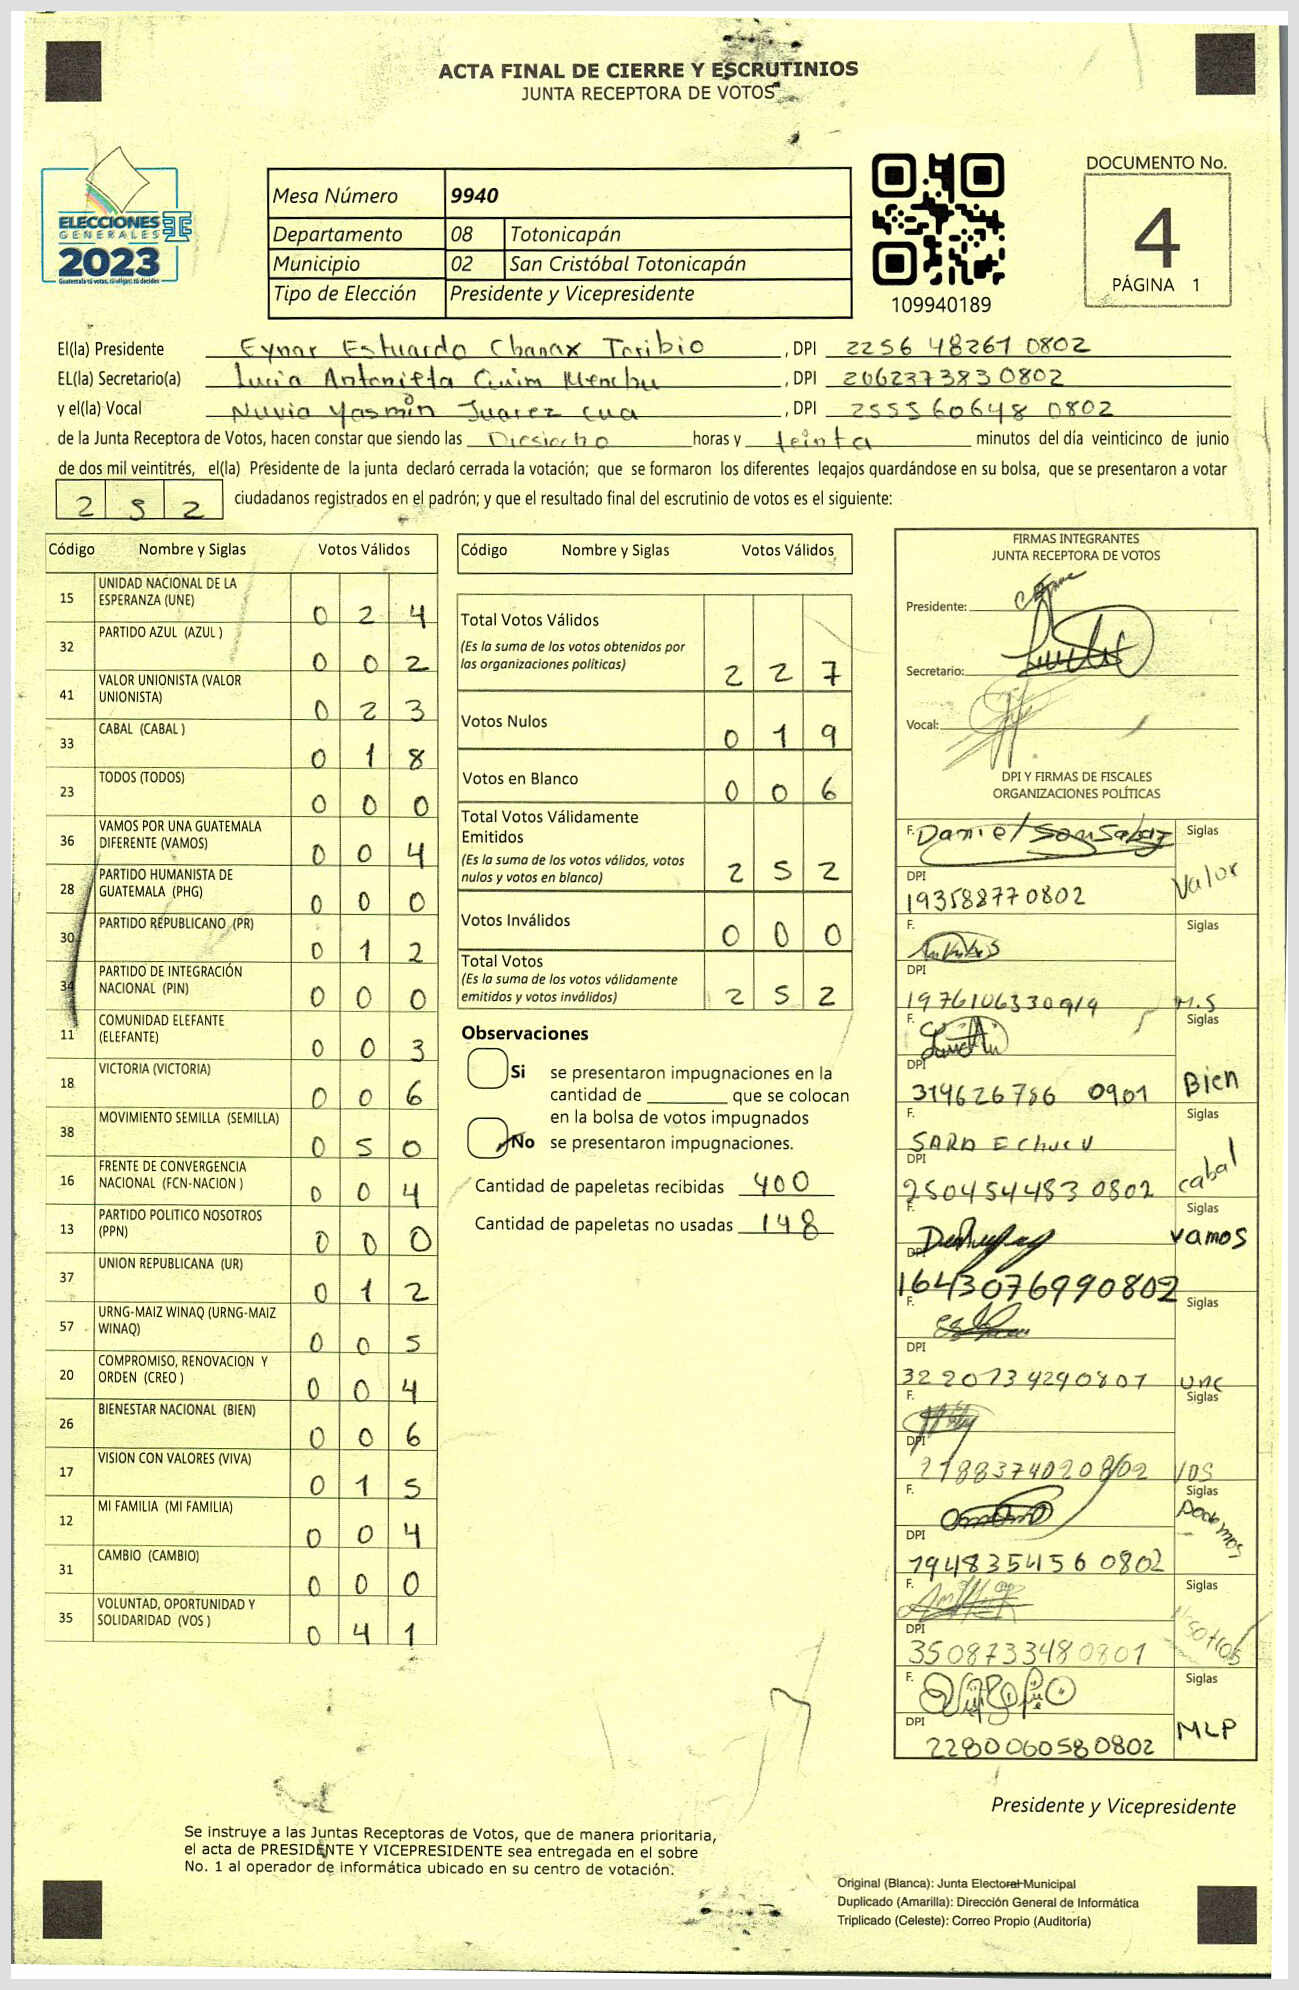 ACTA FINAL DE CIERRE Y ESCRUTINIOS
JUNTA RECEPTORA DE VOTOS
ELECCIONES
GENERALES
2023
Guatemala tú votas, tú eliges, tú decides
Mesa Número 9940
Departamento 08 Totonicapán
Municipio 02 San Cristóbal Totonicapán
Tipo de Elección Presidente y Vicepresidente
109940189
DOCUMENTO No.
4
PÁGINA 1
El(la) Presidente Eynar Estuardo Chanax Toribio , DPI 2256 48261 0802
EL(la) Secretario(a) Lucia Antonieta Quim Menchu , DPI 206237383 0802
y el(la) Vocal Nuvia Yasmin Juarez Cua , DPI 255560648 0802
de la Junta Receptora de Votos, hacen constar que siendo las Diesiocho horas y teinta minutos del día veinticinco de junio
de dos mil veintitrés, el(la) Presidente de la junta declaró cerrada la votación; que se formaron los diferentes legajos guardándose en su bolsa, que se presentaron a votar
252 ciudadanos registrados en el padrón; y que el resultado final del escrutinio de votos es el siguiente:
Código Nombre y Siglas Votos Válidos
15 UNIDAD NACIONAL DE LA ESPERANZA (UNE) 0 2 4
32 PARTIDO AZUL (AZUL ) 0 0 2
41 VALOR UNIONISTA (VALOR UNIONISTA) 0 2 3
33 CABAL (CABAL ) 0 1 8
23 TODOS (TODOS) 0 0 0
36 VAMOS POR UNA GUATEMALA DIFERENTE (VAMOS) 0 0 4
28 PARTIDO HUMANISTA DE GUATEMALA (PHG) 0 0 0
30 PARTIDO REPUBLICANO (PR) 0 1 2
34 PARTIDO DE INTEGRACIÓN NACIONAL (PIN) 0 0 0
11 COMUNIDAD ELEFANTE (ELEFANTE) 0 0 3
18 VICTORIA (VICTORIA) 0 0 6
38 MOVIMIENTO SEMILLA (SEMILLA) 0 5 0
16 FRENTE DE CONVERGENCIA NACIONAL (FCN-NACION ) 0 0 4
13 PARTIDO POLITICO NOSOTROS (PPN) 0 0 0
37 UNION REPUBLICANA (UR) 0 1 2
57 URNG-MAIZ WINAQ (URNG-MAIZ WINAQ) 0 0 5
20 COMPROMISO, RENOVACION Y ORDEN (CREO ) 0 0 4
26 BIENESTAR NACIONAL (BIEN) 0 0 6
17 VISION CON VALORES (VIVA) 0 1 5
12 MI FAMILIA (MI FAMILIA) 0 0 4
31 CAMBIO (CAMBIO) 0 0 0
35 VOLUNTAD, OPORTUNIDAD Y SOLIDARIDAD (VOS ) 0 4 1
Código Nombre y Siglas Votos Válidos
Total Votos Válidos 2 2 7
(Es la suma de los votos obtenidos por
las organizaciones políticas)
Votos Nulos 0 1 9
Votos en Blanco 0 0 6
Total Votos Válidamente
Emitidos 2 5 2
(Es la suma de los votos válidos, votos
nulos y votos en blanco)
Votos Inválidos 0 0 0
Total Votos 2 5 2
(Es la suma de los votos válidamente
emitidos y votos inválidos)
Observaciones
Si se presentaron impugnaciones en la
cantidad de ________ que se colocan
en la bolsa de votos impugnados
No se presentaron impugnaciones.
Cantidad de papeletas recibidas 400
Cantidad de papeletas no usadas 148
FIRMAS INTEGRANTES
JUNTA RECEPTORA DE VOTOS
Presidente:
Secretario:
Vocal:
DPI Y FIRMAS DE FISCALES
ORGANIZACIONES POLÍTICAS
F. Daniel Siglas
DPI 193588770802 Valor
F. Siglas
DPI 1976106330919 M.S
F. Siglas
DPI 314626786 0901 Bien
F. SARA E Siglas
DPI 250454483 0802 cabal
F. Siglas
DPI 1643076990802 vamos
F. Siglas
DPI 3220734290801 UNE
F. Siglas
DPI 2188374020802 VOS
F. Siglas
DPI 194835456 0802 Podemos
F. Siglas
DPI 3508733480801 Nosotros
F. Siglas
DPI 2280060580802 MLP
Presidente y Vicepresidente
Se instruye a las Juntas Receptoras de Votos, que de manera prioritaria,
el acta de PRESIDENTE Y VICEPRESIDENTE sea entregada en el sobre
No. 1 al operador de informática ubicado en su centro de votación.
Original (Blanca): Junta Electoral Municipal
Duplicado (Amarilla): Dirección General de Informática
Triplicado (Celeste): Correo Propio (Auditoría)